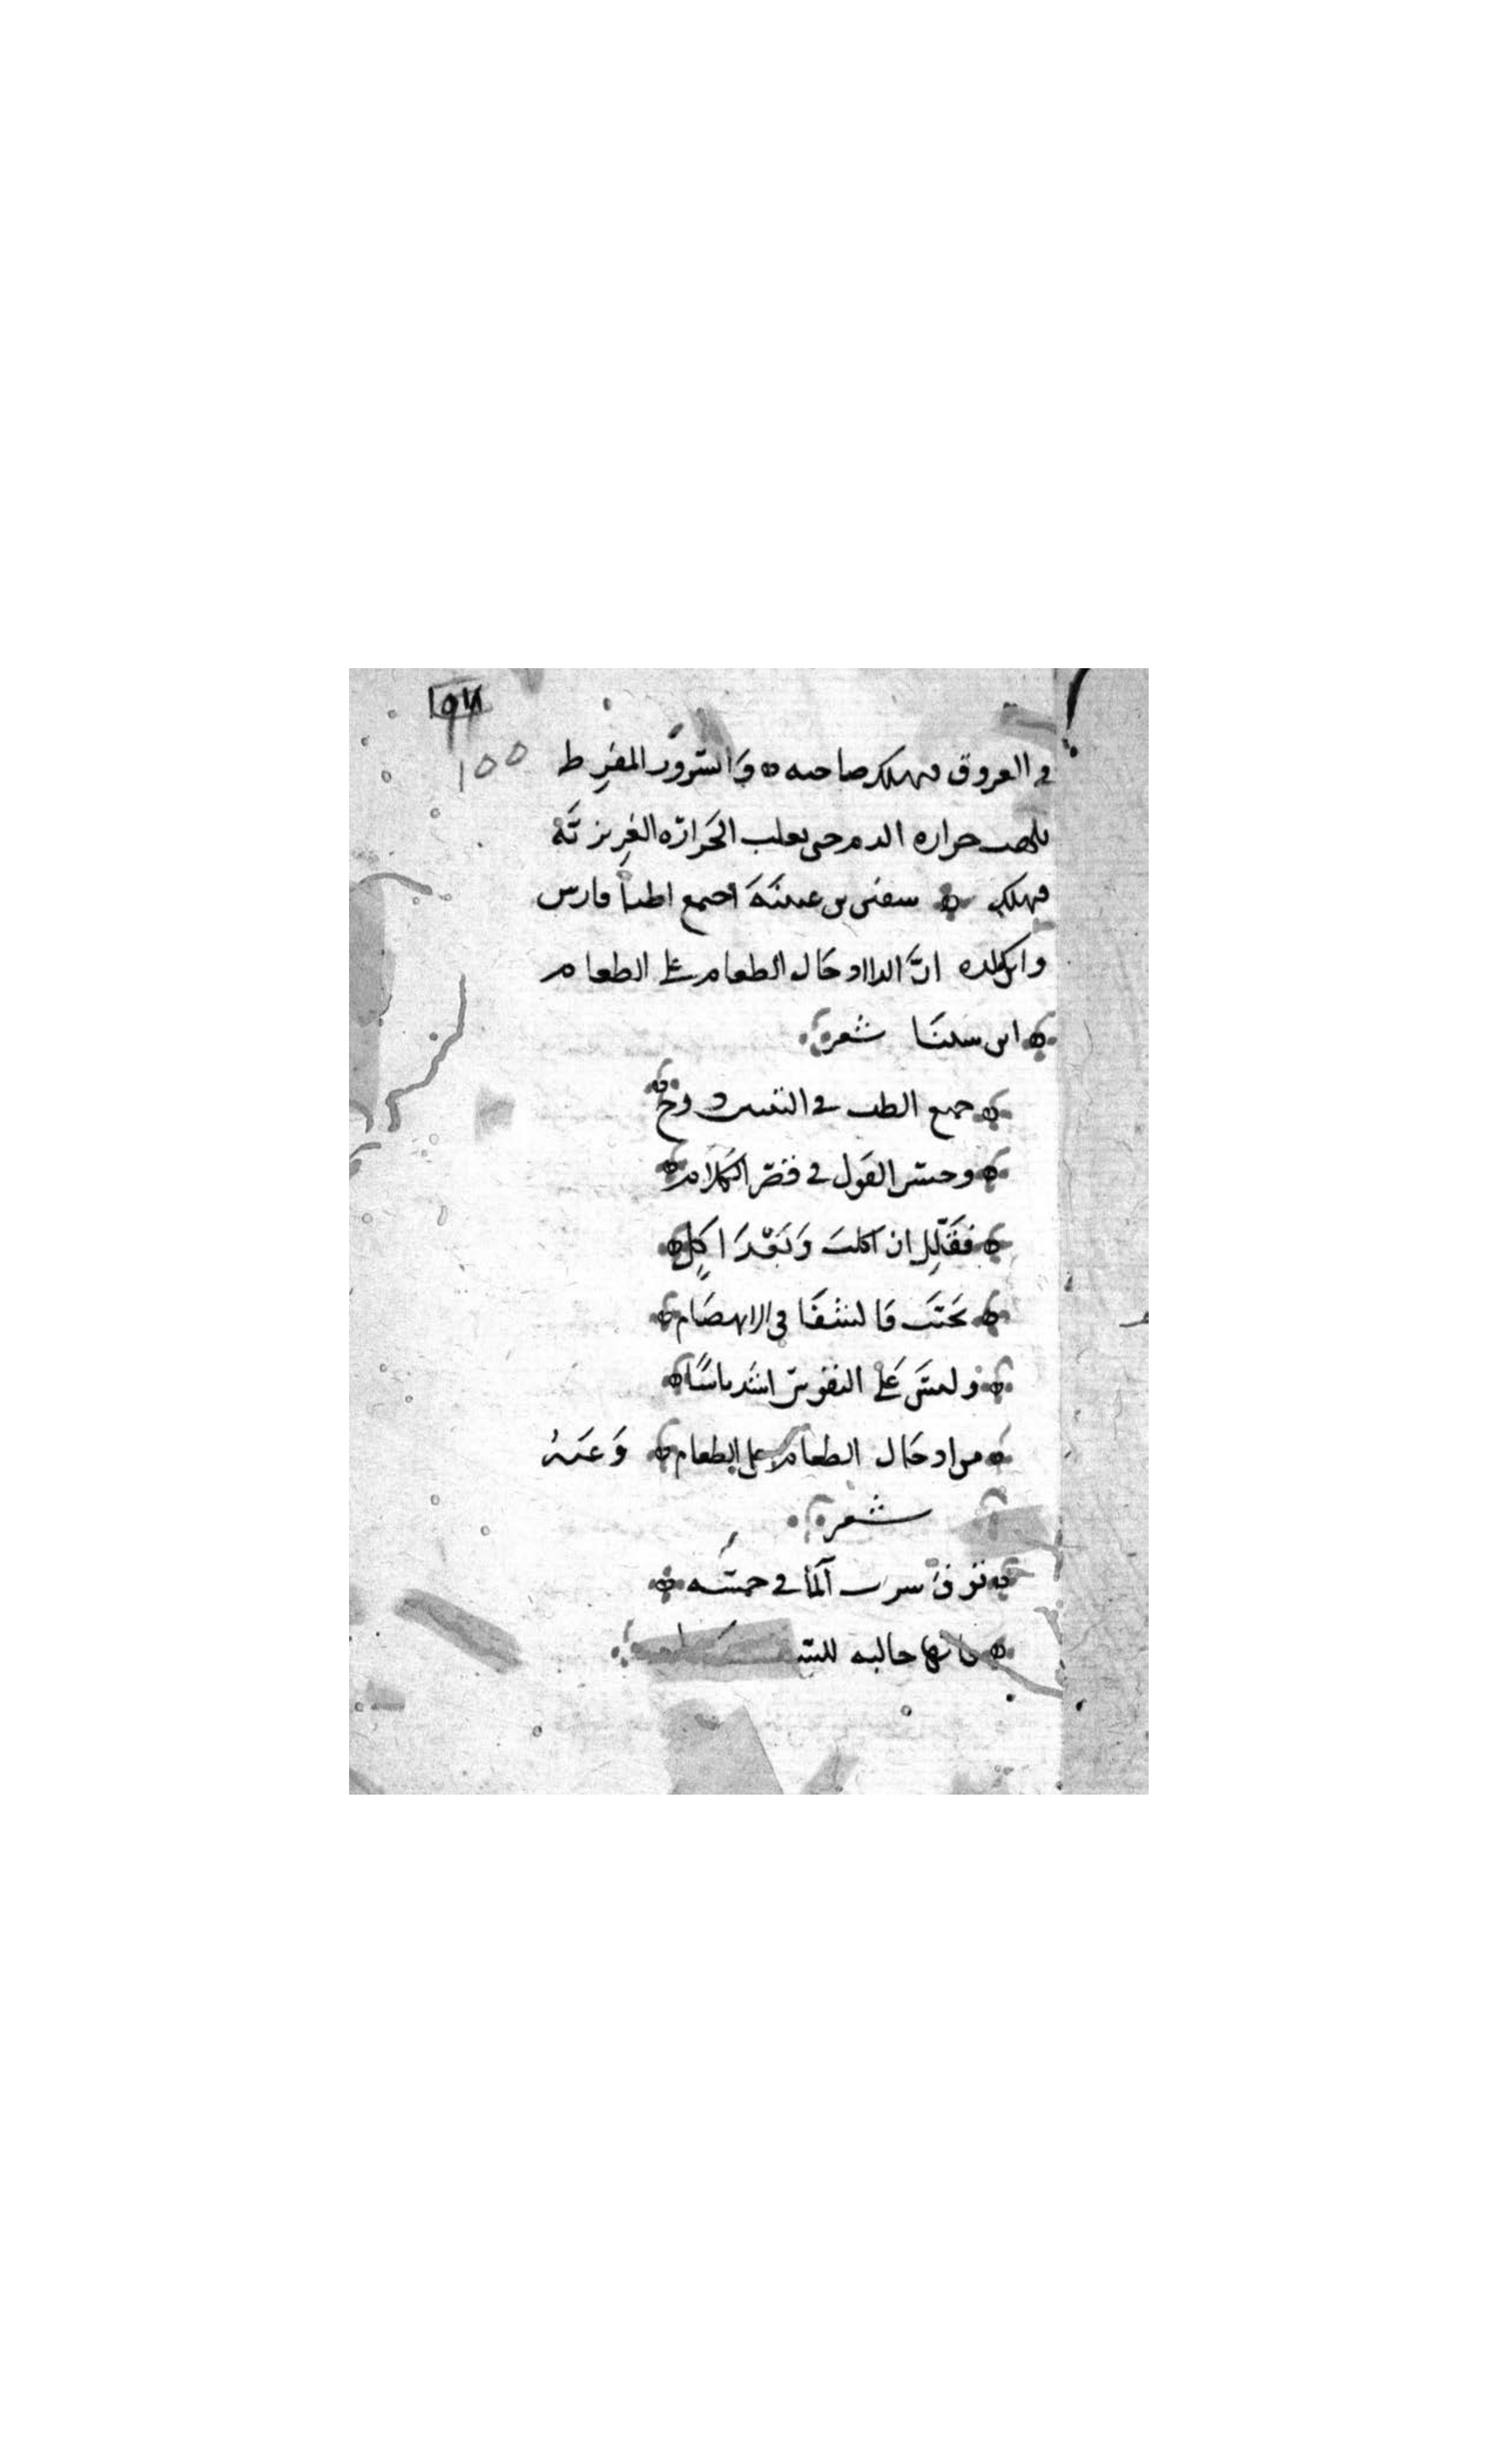 ١٥٥
في العروق فيهلك صاحبه ه وَالسّرورُ المفرِط
يلهب حراره الدم حتى يغلب الحَرارَه الغَرِيزيّة
فيهلك ه سفين بن عيينَة اجمع اطبا فارس
ان الدا ادخَال الطعام على الطعام
ابن سينَا شعر
جميع الطب في
وحسن القول في قصَر الكلام
فقَلِّل ان اكلتَ وَبَعْدَ اكلٍ
تجنَّب فالشفَا في الانهضَام
وليسَ عَلى النفوسِ اشد باسًا
من ادخَال الطعام على الطعام وَعَنهُ
شعر
في خمسَه
فانها جالبه